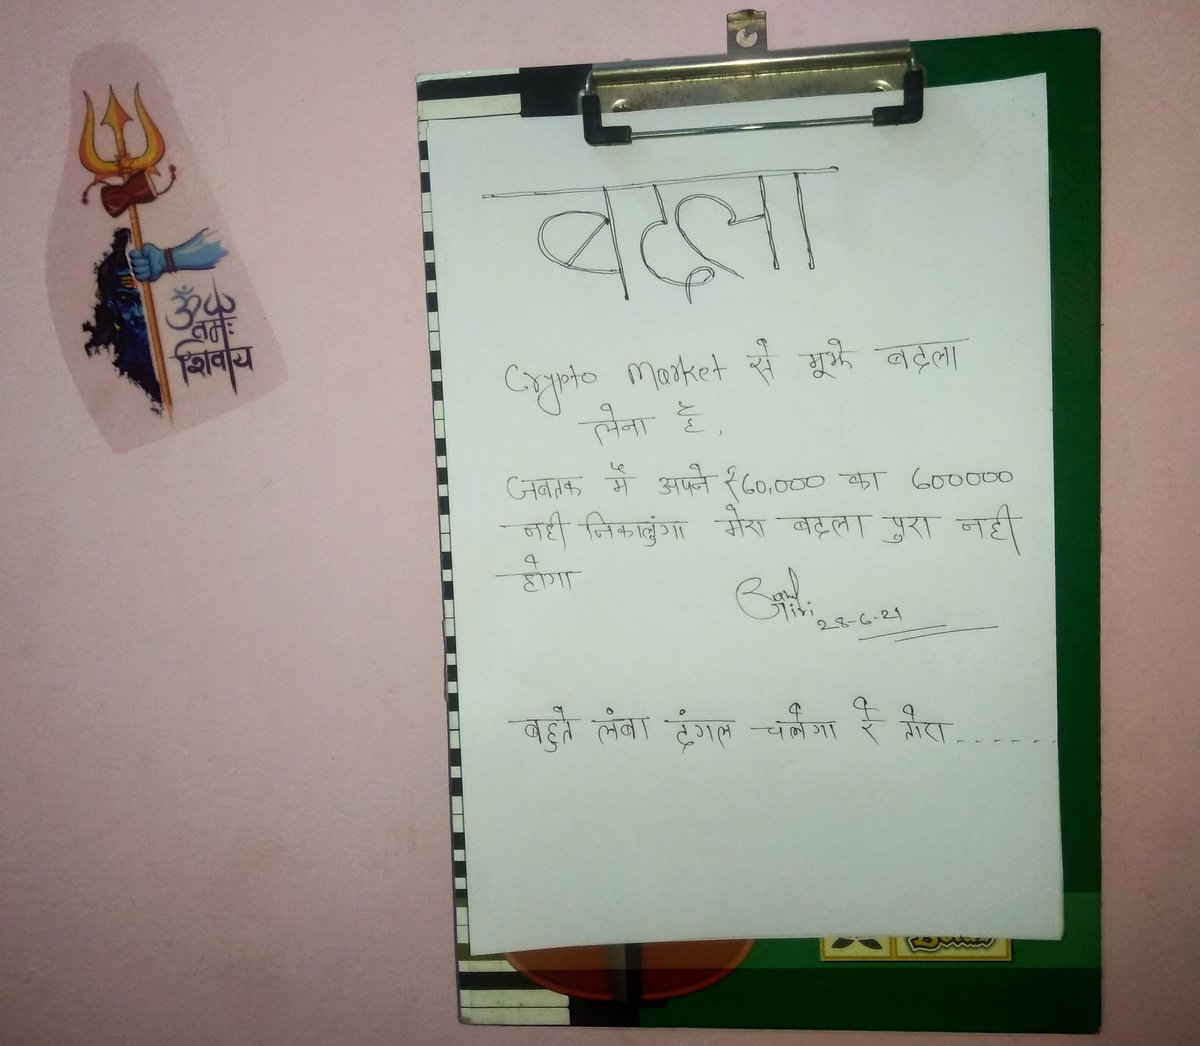 ॐ
नमः
शिवाय
बदला
Crypto Market से मूझे बदला
लेना है,
जबतक मैं अपने ₹60,000 का 600000
नही निकालुंगा मेरा बदला पुरा नही
होगा
Giri
28-6-21
बहुते लंबा दंगल चलेगा रे तोरा.......